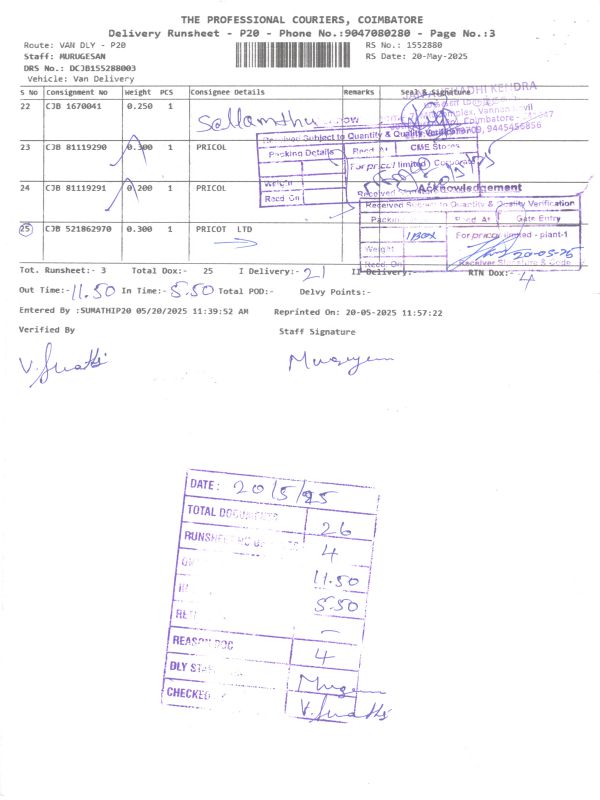 THE PROFESSIONAL COURIERS, COIMBATORE
Delivery Runsheet - P20 - Phone No.:9047080280 - Page No.:3
Route: VAN DLY - P20
RS No.: 1552880
Staff: MURUGESAN
RS Date: 20-May-2025
DRS No.: DCJB155288003
Vehicle: Van Delivery
S No Consignment No Weight PCS Consignee Details Remarks Seal & Signature
22 CJB 1670041 0.250 1
23 CJB 81119290 0.300 1 PRICOL
Received Subject to Quantity & Quality Verification
Packing Details Recd. At CME Stores
For pricol limited Corporate
24 CJB 81119291 0.200 1 PRICOL
Weight
Recd. On
Acknowledgement
Received Subject to Quantity & Quality Verification
Recd. At Gate Entry
25 CJB 521862970 0.300 1 PRICOT LTD
1 BOX For pricol limited - plant-1
Weight 20-05-25
Recd. On Receiver Signature & Code
Tot. Runsheet:- 3 Total Dox:- 25 I Delivery:- 21 II Delivery:- RTN Dox:- 4
Out Time:- 11.50 In Time:- 5.50 Total POD:- Delvy Points:-
Entered By :SUMATHIP20 05/20/2025 11:39:52 AM Reprinted On: 20-05-2025 11:57:22
Verified By Staff Signature
DATE: 20/5/25
TOTAL DOCUMENTS 26
4
11.50
5.50
—
REASON DOC 4
DLY
CHECKED